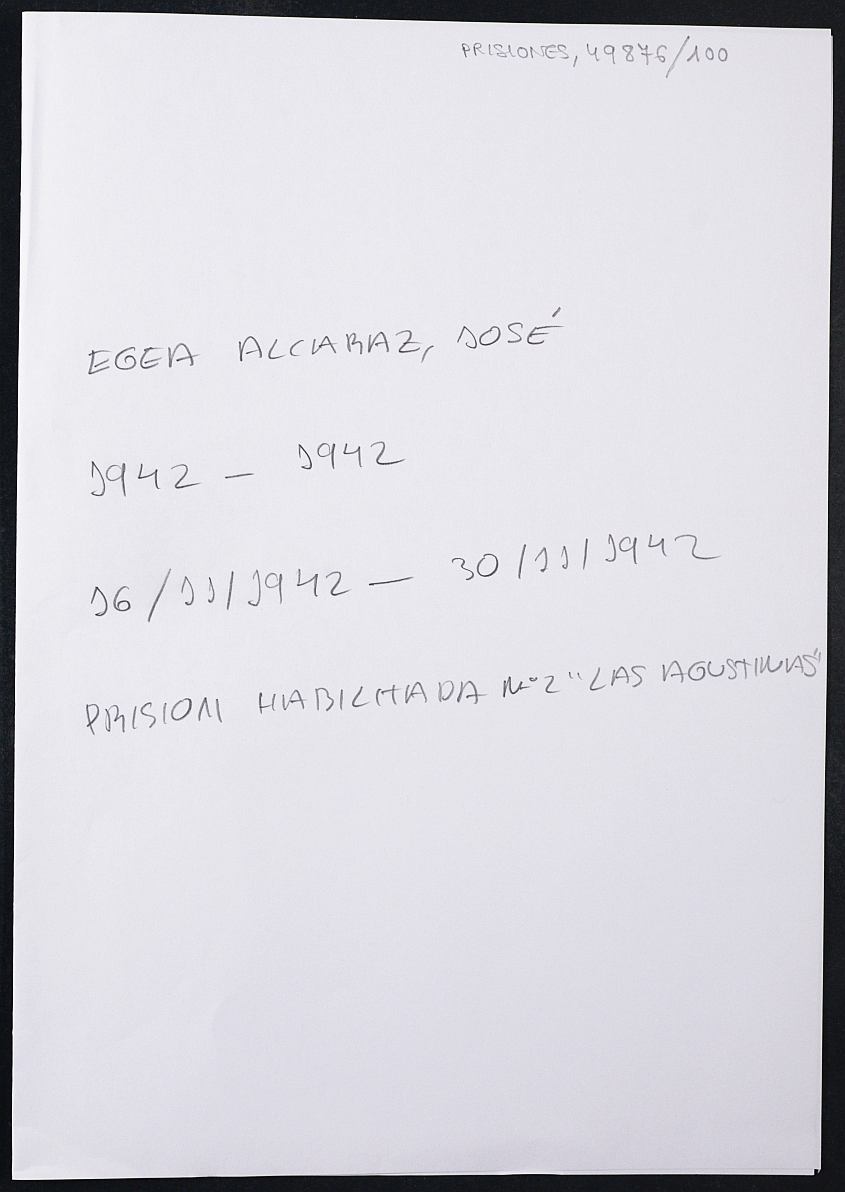 PRISIONES, 49876/100
EGEA ALCARAZ, JOSÉ
1942 - 1942
16/11/1942 - 30/11/1942
PRISION HABILITADA Nº 2 "LAS AGUSTINAS"